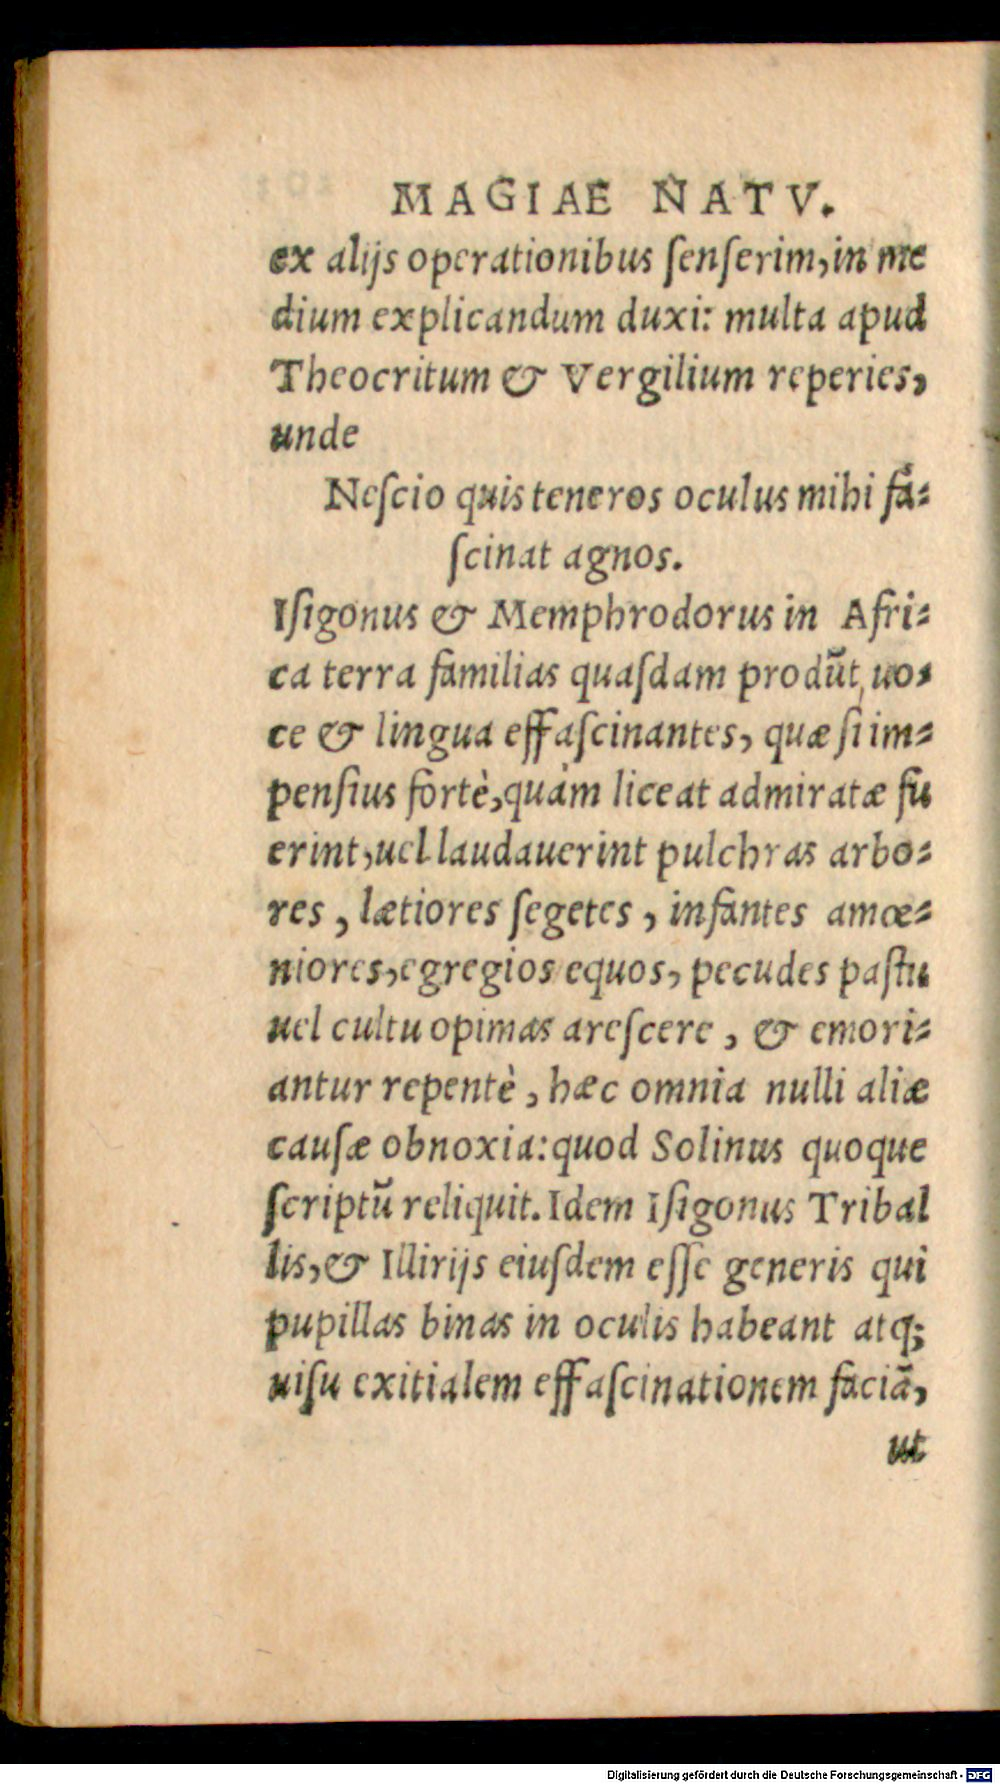 MAGIAE NATV.
ex alijs operationibus ſenſerim, in me
dium explicandum duxi: multa apud
Theocritum & Vergilium reperies,
unde
Neſcio quis teneros oculus mihi fa-
ſcinat agnos.
Iſigonus & Memphrodorus in Afri-
ca terra familias quaſdam produ͂t, uo-
ce & lingua effaſcinantes, quæ ſi im-
penſius fortè, quàm liceat admiratæ fu
erint, uel laudauerint pulchras arbo-
res, lætiores ſegetes, infantes amœ-
niores, egregios equos, pecudes paſtu
uel cultu opimas areſcere, & emori-
antur repentè, hæc omnia nulli aliæ
cauſæ obnoxia: quod Solinus quoque
ſcriptũ reliquit. Idem Iſigonus Tribal
lis, & Illirijs eiuſdem eſſe generis qui
pupillas binas in oculis habeant atq;
uiſu exitialem effaſcinationem faciã,
ut
Digitalisierung gefördert durch die Deutsche Forschungsgemeinschaft - DFG